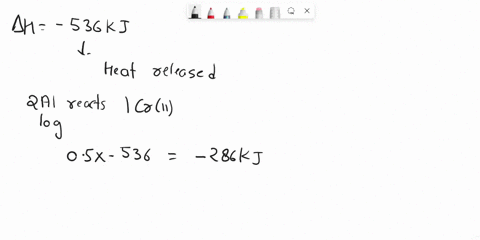 ΔH = - 536 KJ
↓
Heat released
2Al reacts 1 Cr(11)
log
0.5x - 536 = - 286 KJ